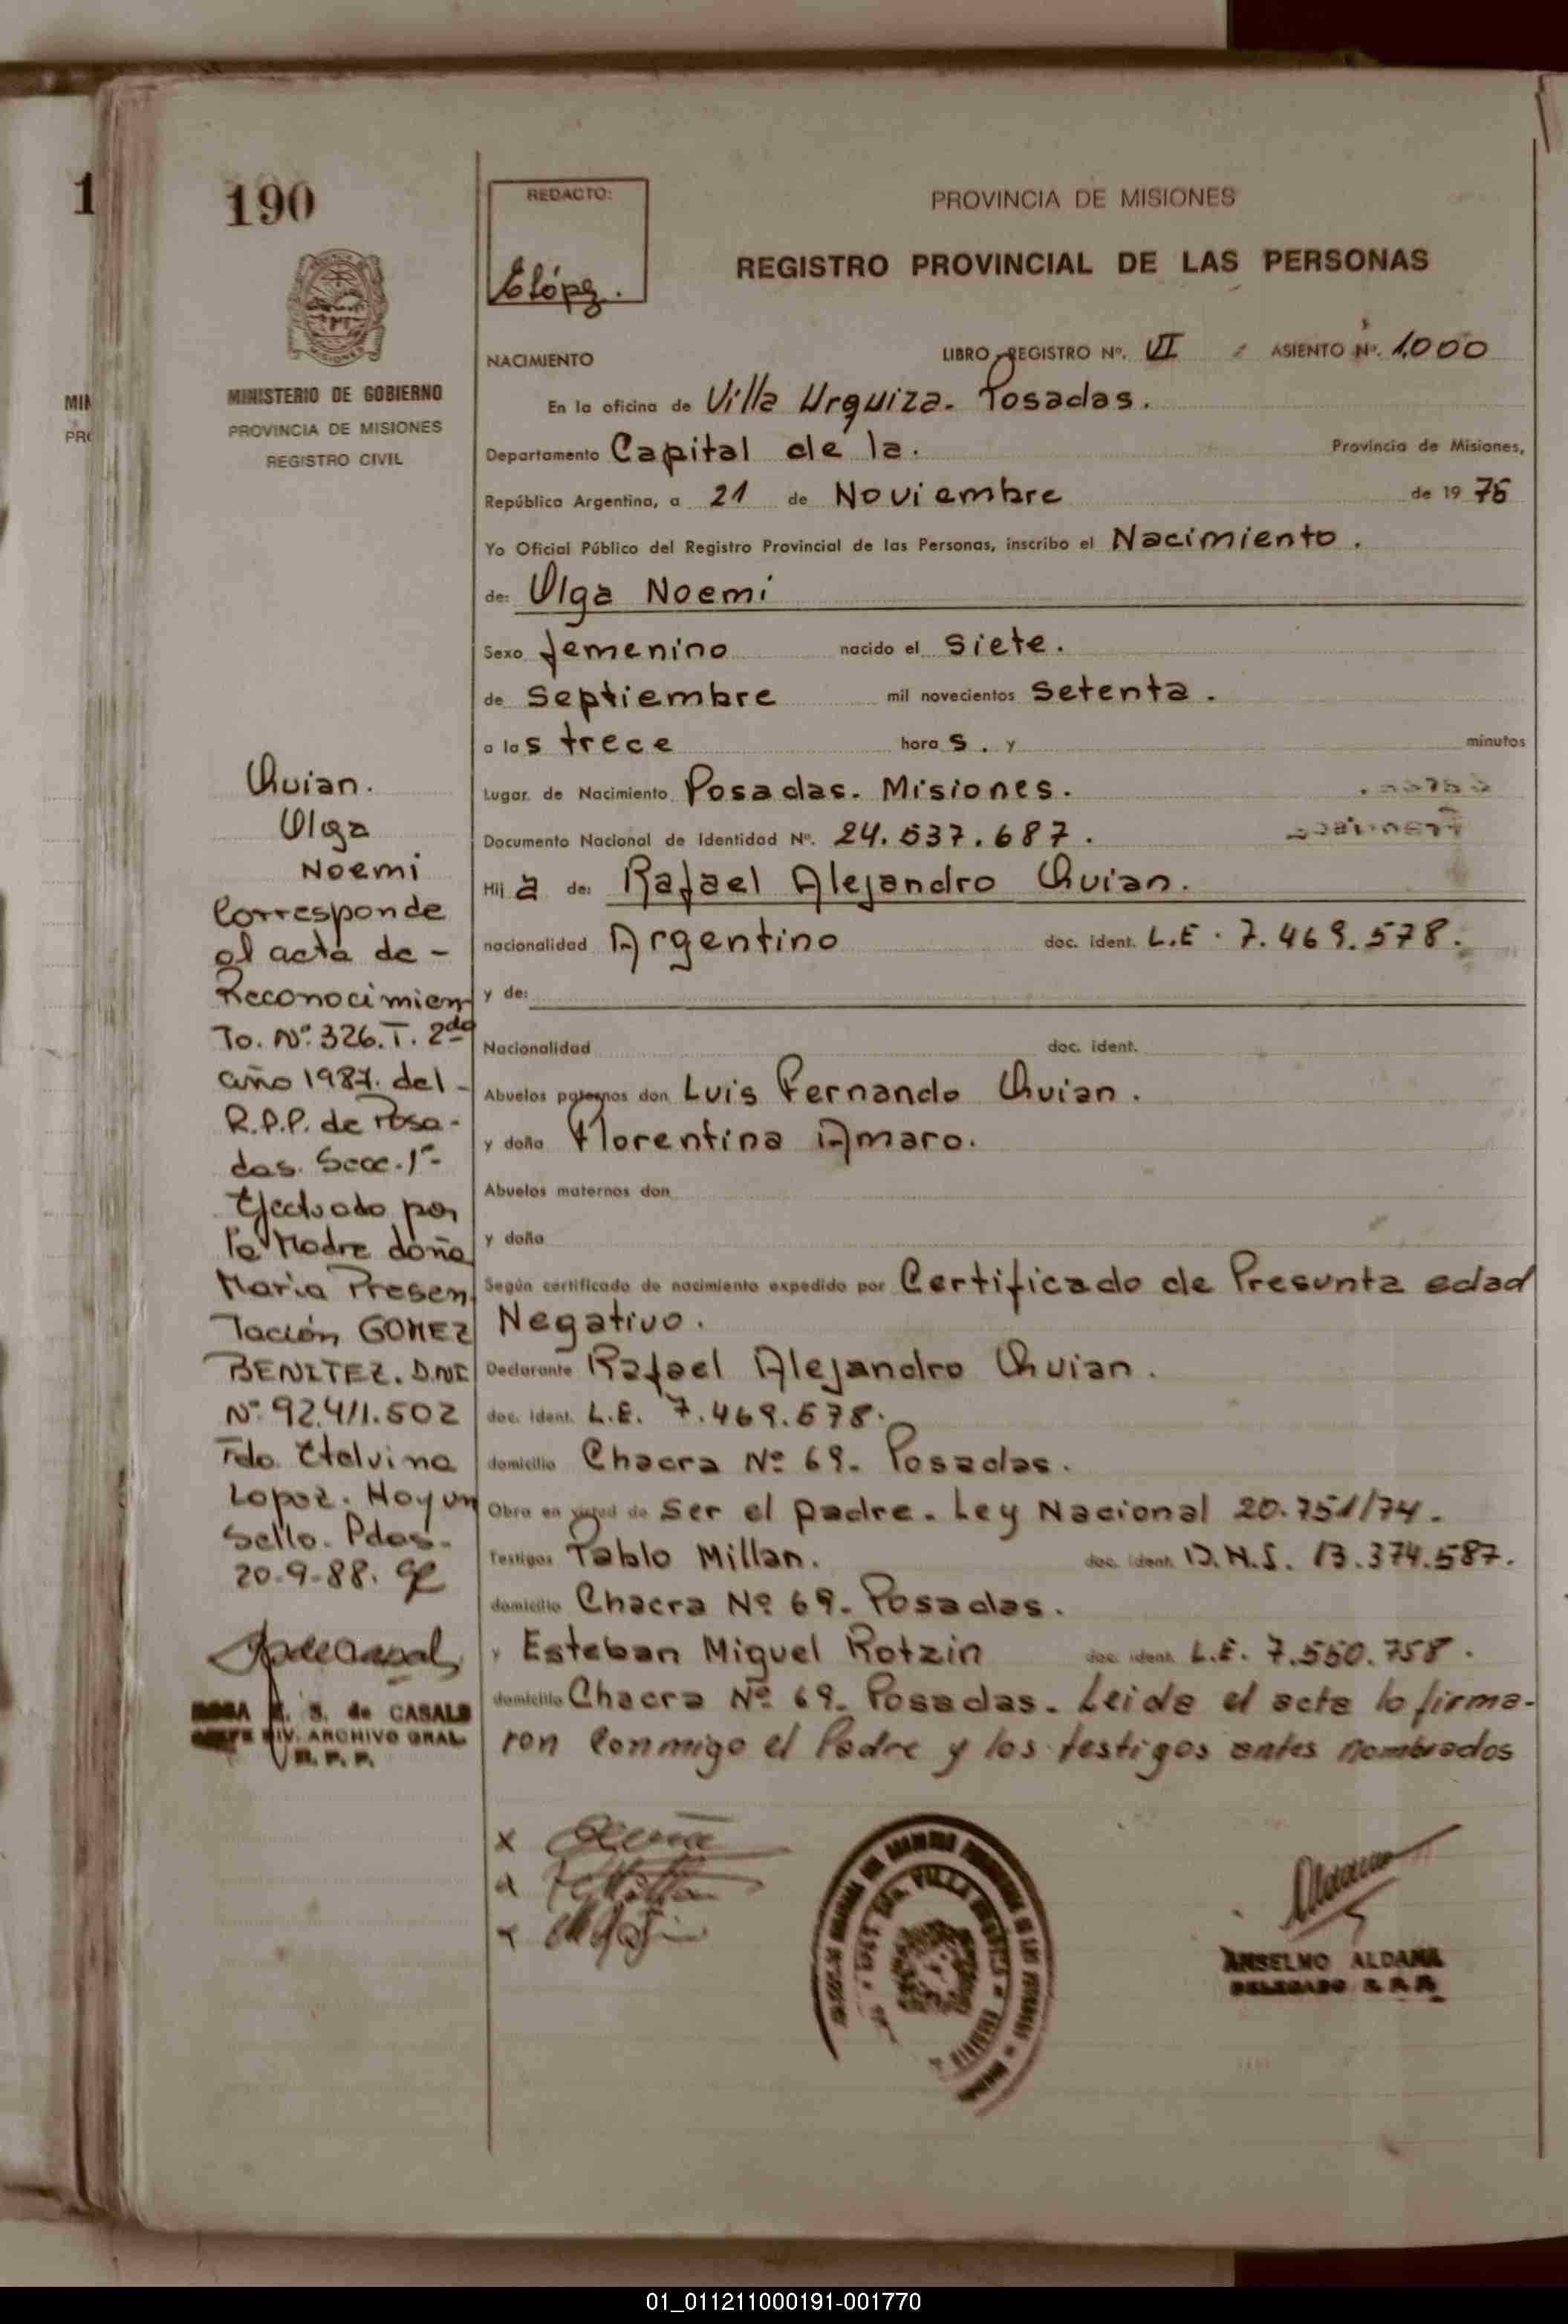 190
REDACTO:
PROVINCIA DE MISIONES
REGISTRO PROVINCIAL DE LAS PERSONAS
MINISTERIO DE GOBIERNO
PROVINCIA DE MISIONES
REGISTRO CIVIL
NACIMIENTO LIBRO REGISTRO Nº. VI ASIENTO Nº. 1.000
En la oficina de Villa Urquiza. Posadas.
Departamento Capital de la. Provincia de Misiones,
República Argentina, a 21 de Noviembre de 19 76
Yo Oficial Público del Registro Provincial de las Personas, inscribo el Nacimiento.
de: Olga Noemi
Sexo femenino nacido el siete.
de septiembre mil novecientos setenta.
a las trece horas. y minutos
Lugar de Nacimiento Posadas. Misiones.
Documento Nacional de Identidad Nº. 24.537.687.
Hija de: Rafael Alejandro
nacionalidad Argentino doc. ident. L.E. 7.469.578.
y de:
Nacionalidad doc. ident.
Abuelos paternos don Luis Fernando
y doña Florentina Amaro.
Abuelos maternos don
y doña
Según certificado de nacimiento expedido por Certificado de Presunta edad
Negativo.
Declarante Rafael Alejandro
doc. ident. L.E. 7.469.578.
domicilio Chacra Nº 69. Posadas.
Obra en virtud de ser el padre. Ley Nacional 20.751/74.
Testigos Pablo Millan. doc. ident. 13.374.587.
domicilio Chacra Nº 69. Posadas.
y Esteban Miguel Rotzin doc. ident. L.E. 7.550.758.
domicilio Chacra Nº 69. Posadas. Leida el acta lo firma-
ron conmigo el Padre y los testigos antes nombrados
Olga
Noemi
Corresponde
al acta de -
Reconocimien
To. Nº. 326. T. 2do
año 1987. del -
R.P.P. de Posa-
das. Secc. 1ª-
Efectuado por
la Madre doña
Maria Presen
Tación GOMEZ
BENITEZ. D.NI
Nº. 92.411.502
Fdo. Etelvina
Lopez. Hay un
Sello. Pdas.
20-9-88.
S. de CASALS
DIV. ARCHIVO GRAL.
R. P. P.
ANSELMO ALDANA
DELEGADO R. P. P.
01_011211000191-001770